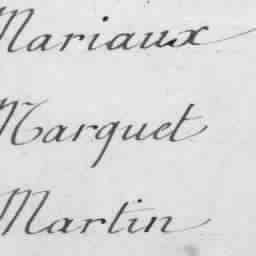 Mariaux
Marquet
Martin